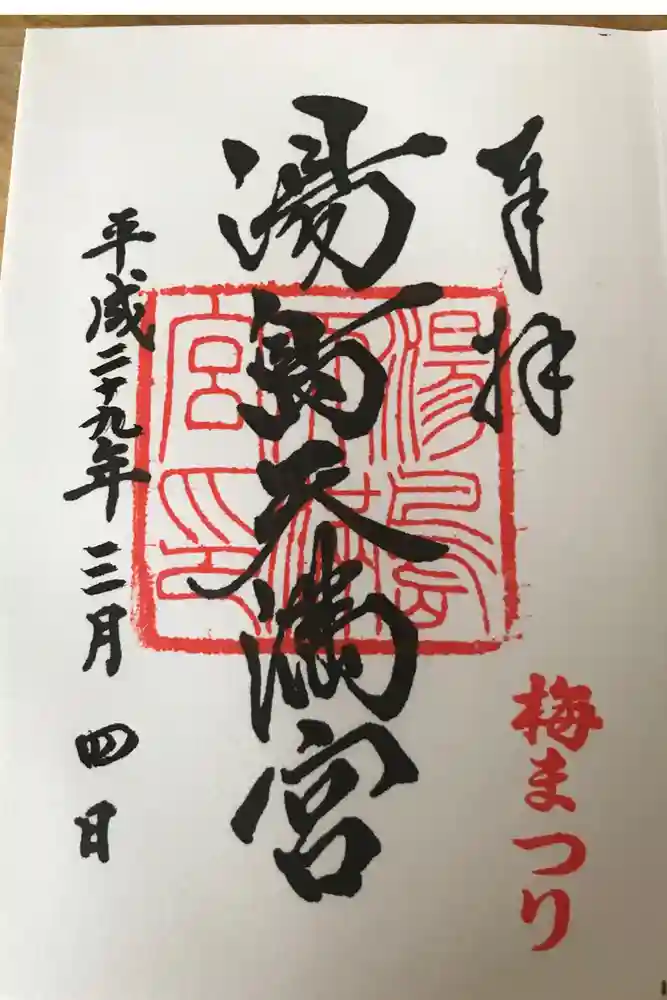 奉拝
梅まつり
湯島天満宮
湯島天満宮印
平成二十九年三月四日